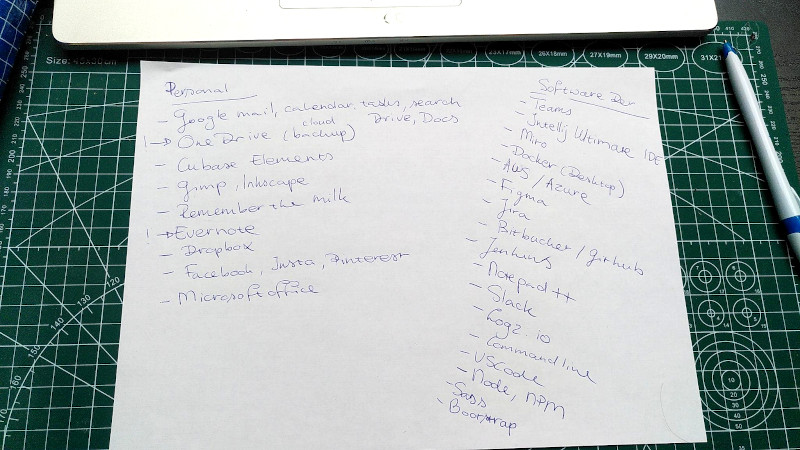 Size: 45x30cm
26x18mm
27x19mm
29x20mm
31x21
Personal
- Google mail, calendar, tasks, search
Drive, Docs
! → OneDrive (cloud backup)
- Cubase Elements
- Gimp, Inkscape
- Remember the milk
! → Evernote
- Dropbox
- Facebook, Insta, Pinterest
- Microsoft office
Software Dev
- Teams
- Intellij Ultimate IDE
- Miro
- Docker (Desktop)
- AWS / Azure
- Figma
- Jira
- Bitbucket / github
- Jenkins
- Notepad ++
- Slack
- Logz.io
- Commandline
- VScode
- Node, NPM
- Sass
- Bootstrap